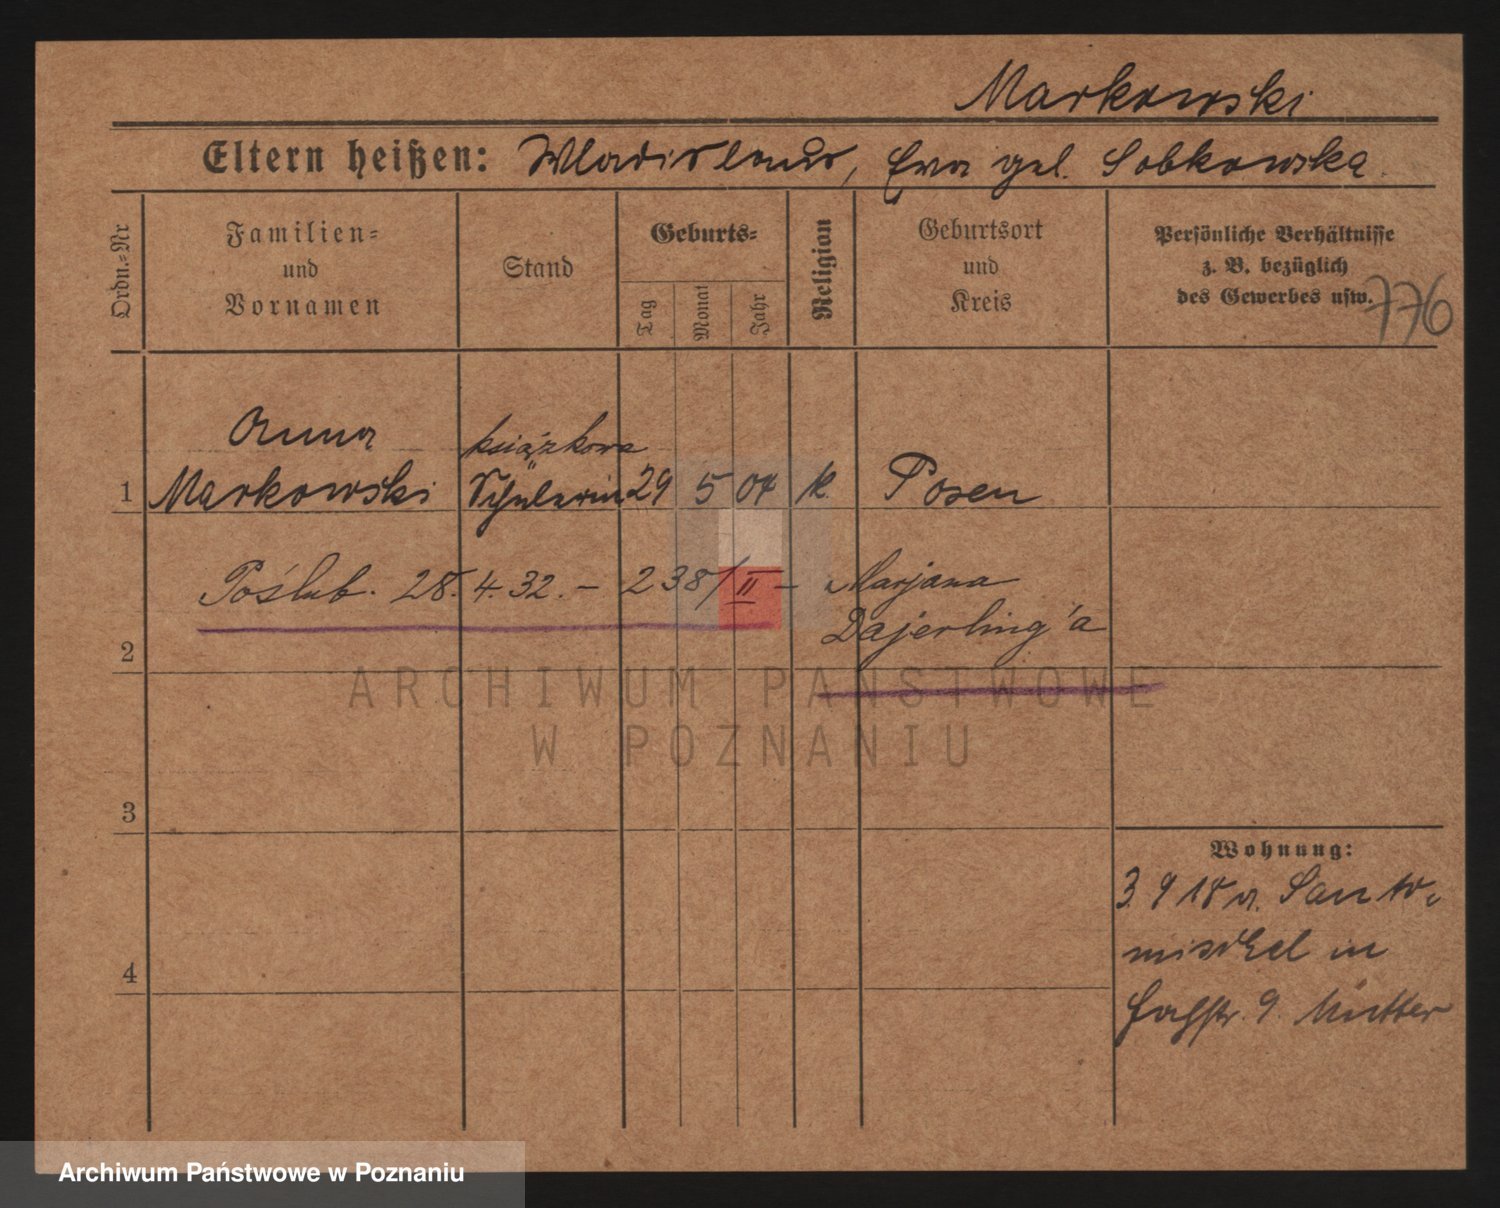 Markowski
Eltern heißen: Wladislaus, Eva geb. Sobkowska.
Ordn.-Nr
Familien-
und
Vornamen
Stand
Geburts-
Tag
Monat
Jahr
Religion
Geburtsort
und
Kreis
Persönliche Verhältnisse
z. B. bezüglich
des Gewerbes usw.
776
Anna książkowa
1 Markowski Schülerin 29 5 04 k. Posen
Poślub. 28.4.32. – 238/II – Marjana
Dajerling'a
2
ARCHIWUM PAŃSTWOWE
W POZNANIU
3
Wohnung:
3 9 18 a. Santo-
mischel in
9. Mutter
4
Archiwum Państwowe w Poznaniu